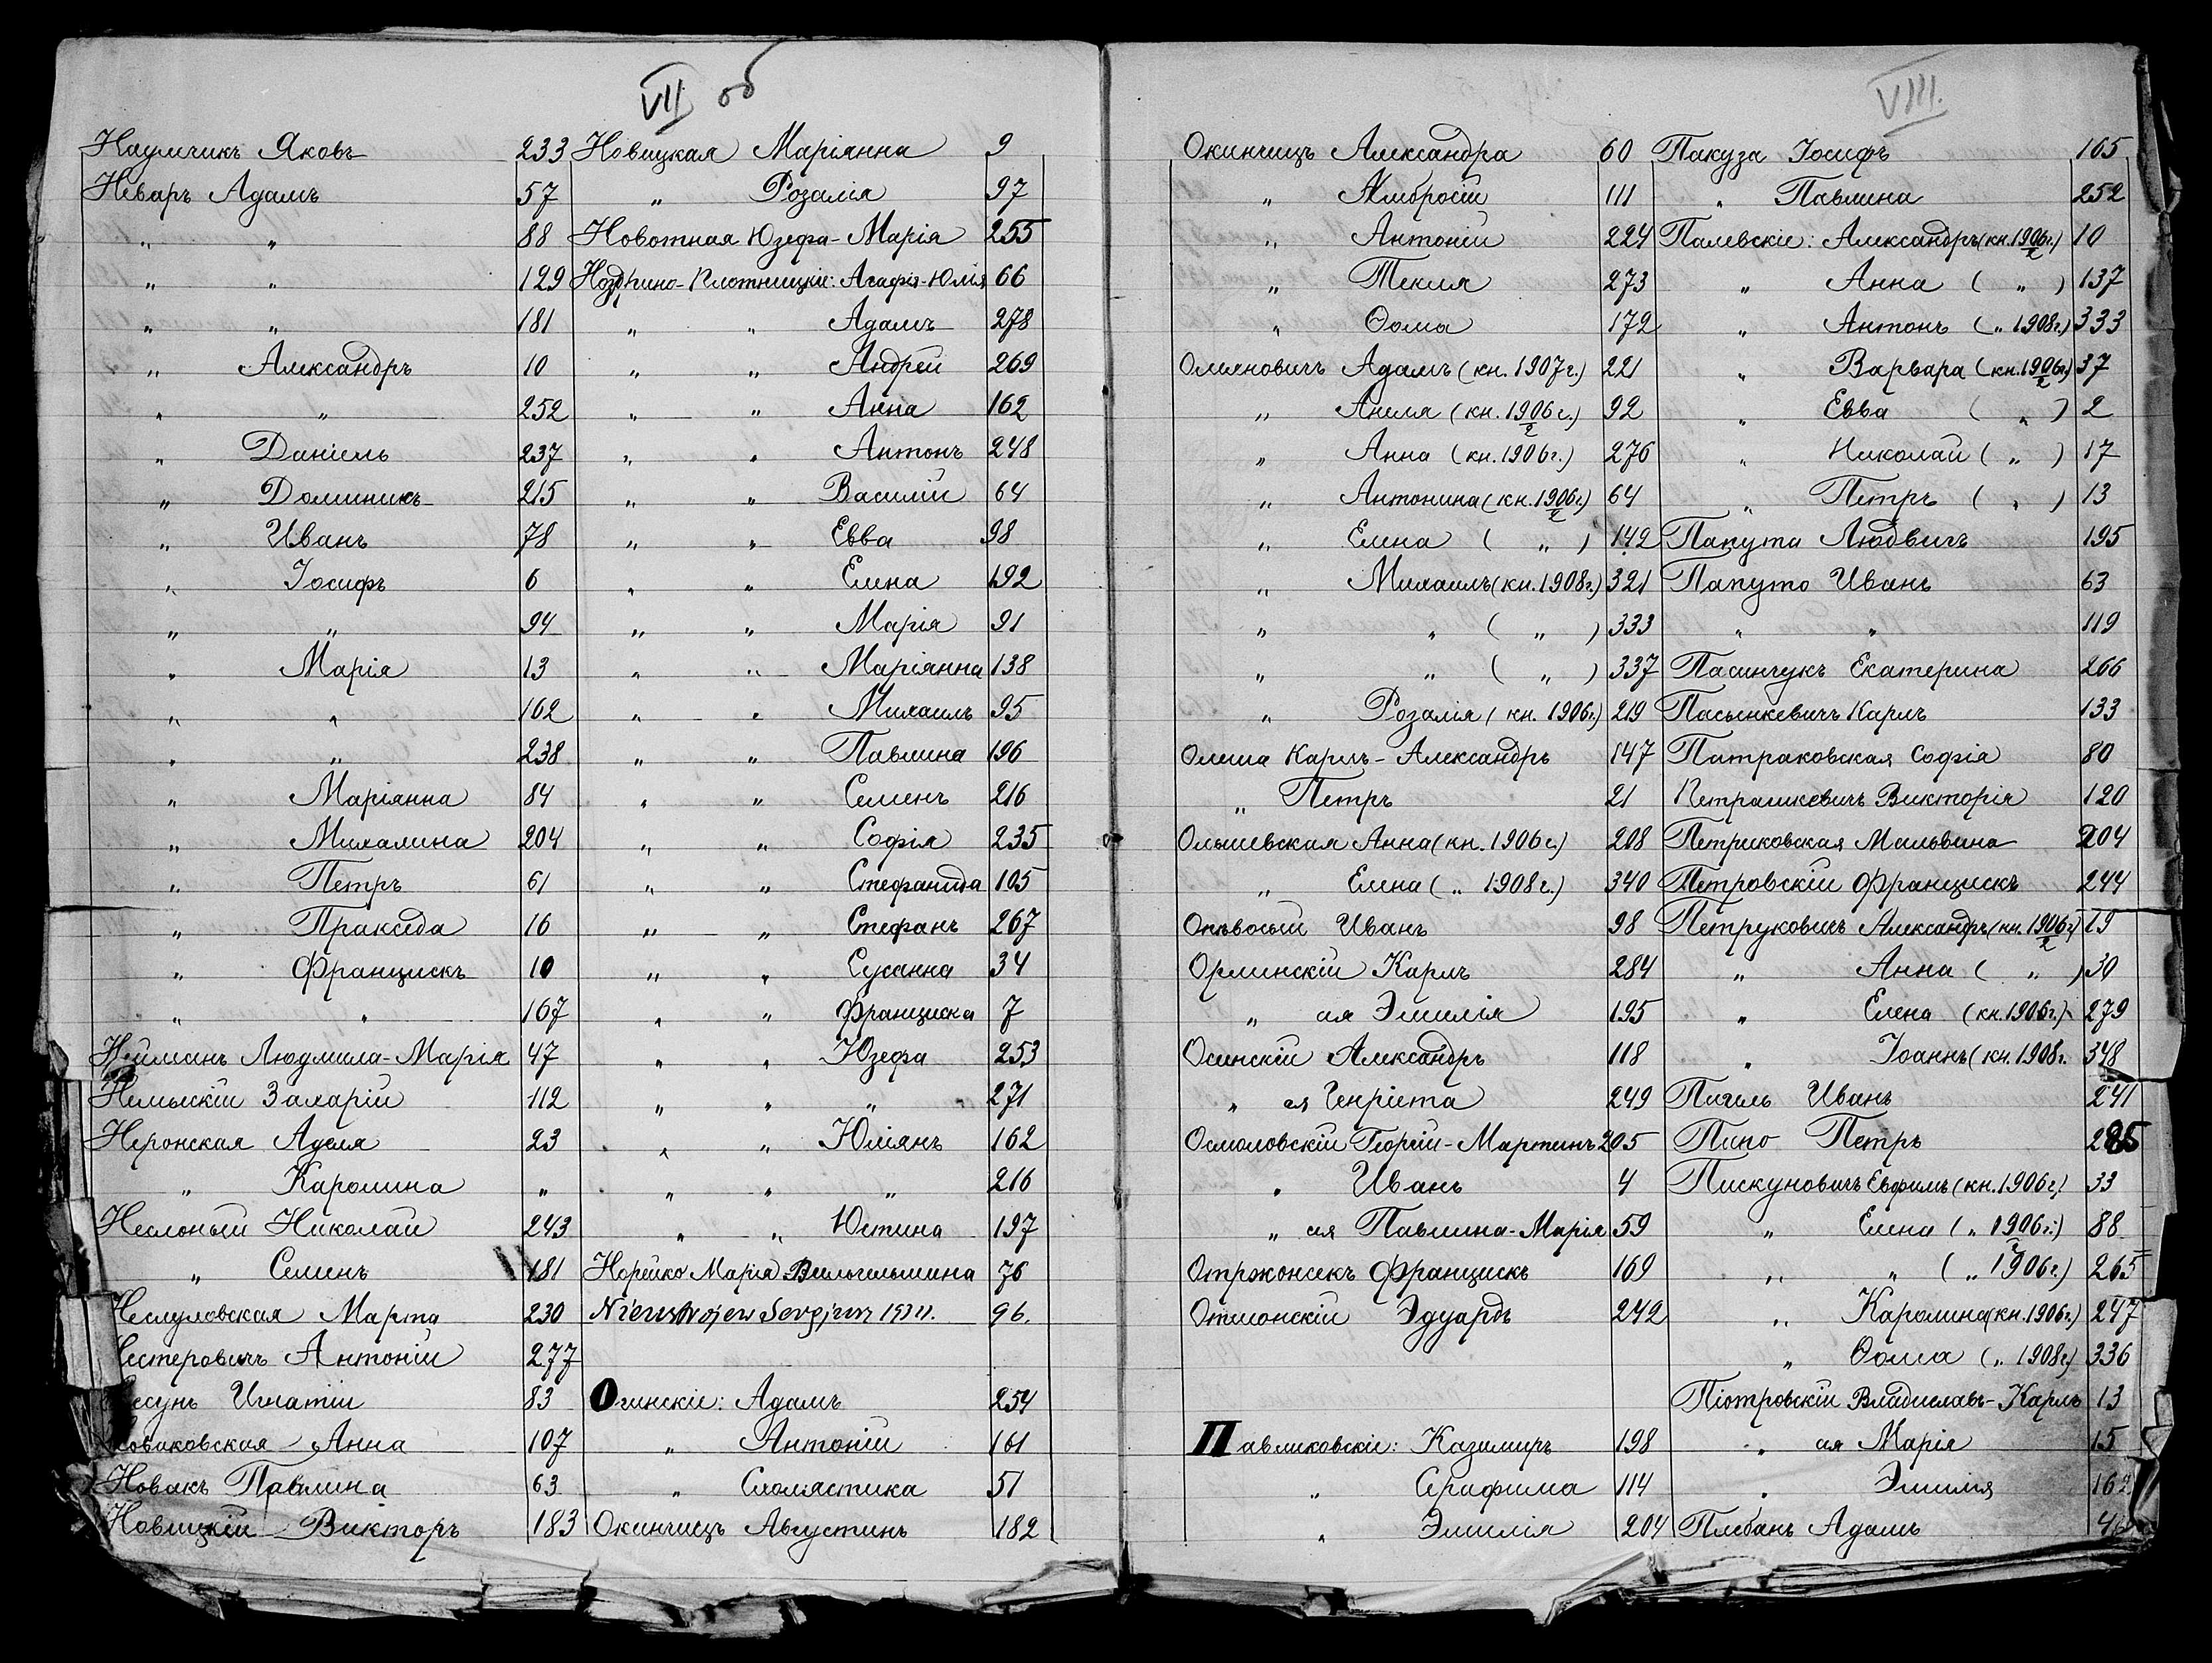 VII об
Наумчикъ Яковъ 233
Неваръ Адамъ 57
" " 88
" " 129
" " 181
" Александръ 10
" " 252
" Даніель 237
" Доминикъ 215
" Иванъ 78
" Іосифъ 6
" " 94
" Марія 13
" " 162
" " 238
" Маріянна 84
" Михалина 204
" Петръ 61
" Пракседа 16
" Францискъ 10
" " 167
Нейманъ Людмила-Марія 47
Немыскій Захарій 112
Неронская Аделя 23
" Каролина "
Неслоный Николай 243
" Семенъ 181
Неслуховская Марта 230
Нестеровичъ Антоній 277
Несунъ Игнатій 83
Новаковская Анна 107
Новакъ Павлина 63
Новицкій Викторъ 183
Новицкая Маріянна 9
" Розалія 97
Новотная Юзефа-Марія 255
Ноздрино-Плотницкіе: Агафія-Юлія 66
" " Адамъ 278
" " Андрей 269
" " Анна 162
" " Антонъ 248
" " Василій 64
" " Евва 98
" " Елена 192
" " Марія 91
" " Маріянна 138
" " Михаилъ 95
" " Павлина 196
" " Семенъ 216
" " Софія 235
" " Стефанида 105
" " Стефанъ 267
" " Сусанна 34
" " Франциска 7
" " Юзефа 253
" " " 271
" " Юліянъ 162
" " " 216
" " Юстина 197
Норейко Марія Вильгельмина 76
96.
Огинскіе: Адамъ 254
" Антоній 161
" Схолястика 51
Окинчицъ Августинъ 182
VIII.
Окинчицъ Александра 60
" Амбросій 111
" Антоній 224
" Текля 273
" Ѳома 172
Ольяновичъ Адамъ (кн. 1907 г.) 221
" Анеля (кн. 1906 г. 2) 92
" Анна (кн. 1906 г.) 276
" Антонина (кн. 1906 г. 2) 64
" Елена ( " ) 142
" Михаилъ (кн. 1908 г.) 321
" " ( " ) 333
" " ( " ) 337
" Розалія (кн. 1906 г.) 219
Олеша Карлъ-Александръ 147
" Петръ 21
Ольшевская Анна (кн. 1906 г.) 208
" Елена ( " 1908 г.) 340
Иванъ 98
Орлинскій Карлъ 284
" ая Эмилія 195
Осинскій Александръ 118
" ая Генріета 249
Осмоловскій Георгій-Мартинъ 205
" Иванъ 4
" ая Павлина-Марія 59
Отржонсекъ Францискъ 169
Отмонскій Эдуардъ 242
Павликовскіе: Казимиръ 198
" Серафима 114
" Эмилія 204
Пакуза Іосифъ 165
" Павлина 252
Палевскіе: Александръ (кн. 1906 г. 2) 10
" Анна ( " ) 137
" Антонъ ( " 1908 г.) 333
" Варвара (кн. 1906 г. 2) 37
" Евва ( " ) 2
" Николай ( " ) 17
" Петръ ( " ) 13
Папута Людвигъ 195
Папуто Иванъ 63
" " 119
Пасинчукъ Екатерина 266
Пасынкевичъ Карлъ 133
Патраковская Софія 80
Петрашкевичъ Викторія 120
Петриковская Мальвина 204
Петровскій Францискъ 244
Петруковичъ Александръ (кн. 1906 г. 2) 19
" Анна ( " ) 30
" Елена (кн. 1906 г.) 279
" Іоаннъ (кн. 1908 г. 348
Пигель Иванъ 241
Пино Петръ 285
Пискуновичъ Евфимъ (кн. 1906 г.) 33
" Елена ( " 1906 г. 2) 88
" " ( " 1906 г.) 265
" Каролина (кн. 1906 г.) 247
" Ѳома ( " 1908 г.) 336
Піотровскій Владиславъ-Карлъ 13
" ая Марія 15
" Эмилія 162
Плебанъ Адамъ